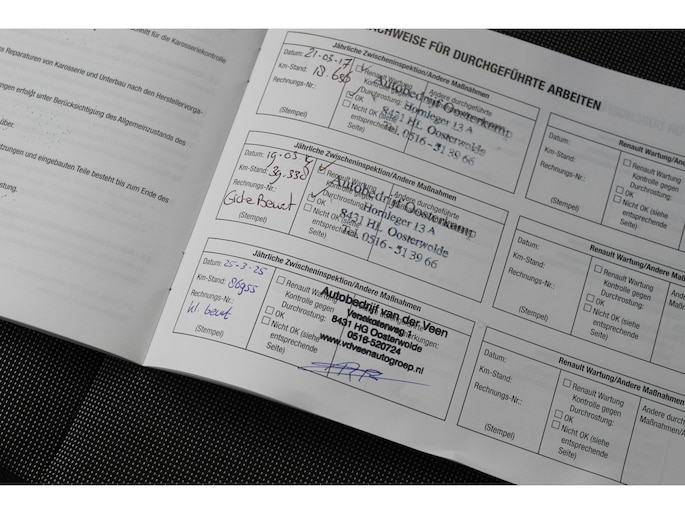 hnitt für die Karosseriekontrolle
s Reparaturen von Karosserie und Unterbau nach den Herstellervorga-
ngen erfolgt unter Berücksichtigung des Allgemeinzustands des
über.
tzungen und eingebauten Teile besteht bis zum Ende des
stung.
ACHWEISE FÜR DURCHGEFÜHRTE ARBEITEN
Jährliche Zwischeninspektion/Andere Maßnahmen
Datum: 21-03-17
Km-Stand:
Rechnungs-Nr.:
(Stempel)
Renault Wartung
Durchrostung:
OK
Nicht OK (siehe
entsprechende
Seite)
Andere durchgeführte
Autobedrijf Oosterkamp
Hornleger 13 A
8431 HL Oosterwolde
Tel. 0516-513966
Jährliche Zwischeninspektion/Andere Maßnahmen
Datum: 19-03
Km-Stand: 39.330
Rechnungs-Nr.:
(Stempel)
Renault Wartung
Kontrolle gegen
Durchrostung:
OK
Nicht OK (siehe
entsprechende
Seite)
Andere durchgeführte
Autobedrijf Oosterkamp
Hornleger 13 A
8431 HL Oosterwolde
Tel. 0516-513966
Jährliche Zwischeninspektion/Andere Maßnahmen
Datum: 25-3-25
Km-Stand: 86955
Rechnungs-Nr.:
(Stempel)
Renault Wartung
Kontrolle gegen
Durchrostung:
OK
Nicht OK (siehe
entsprechende
Seite)
Autobedrijf van der Veen
Venekoterweg 1
8431 HG Oosterwolde
0516-520724
www.vdveenautogroep.nl
Datum:
Km-Stand:
Rechnungs-Nr.:
(Stempel)
Renault Wartung/Ande
Renault Wartung
Kontrolle gegen
Durchrostung:
OK
Nicht OK (siehe
entsprechende
Seite)
Renault Wartung/Andere Ma
Datum:
Km-Stand:
Rechnungs-Nr.:
(Stempel)
Renault Wartung
Kontrolle gegen
Durchrostung:
OK
Nicht OK (siehe
entsprechende
Seite)
Renault Wartung/Andere Maßnahmen
Datum:
Km-Stand:
Rechnungs-Nr.:
(Stempel)
Renault Wartung
Kontrolle gegen
Durchrostung:
OK
Nicht OK (siehe
entsprechende
Seite)
Andere durch
Maßnahmen/A